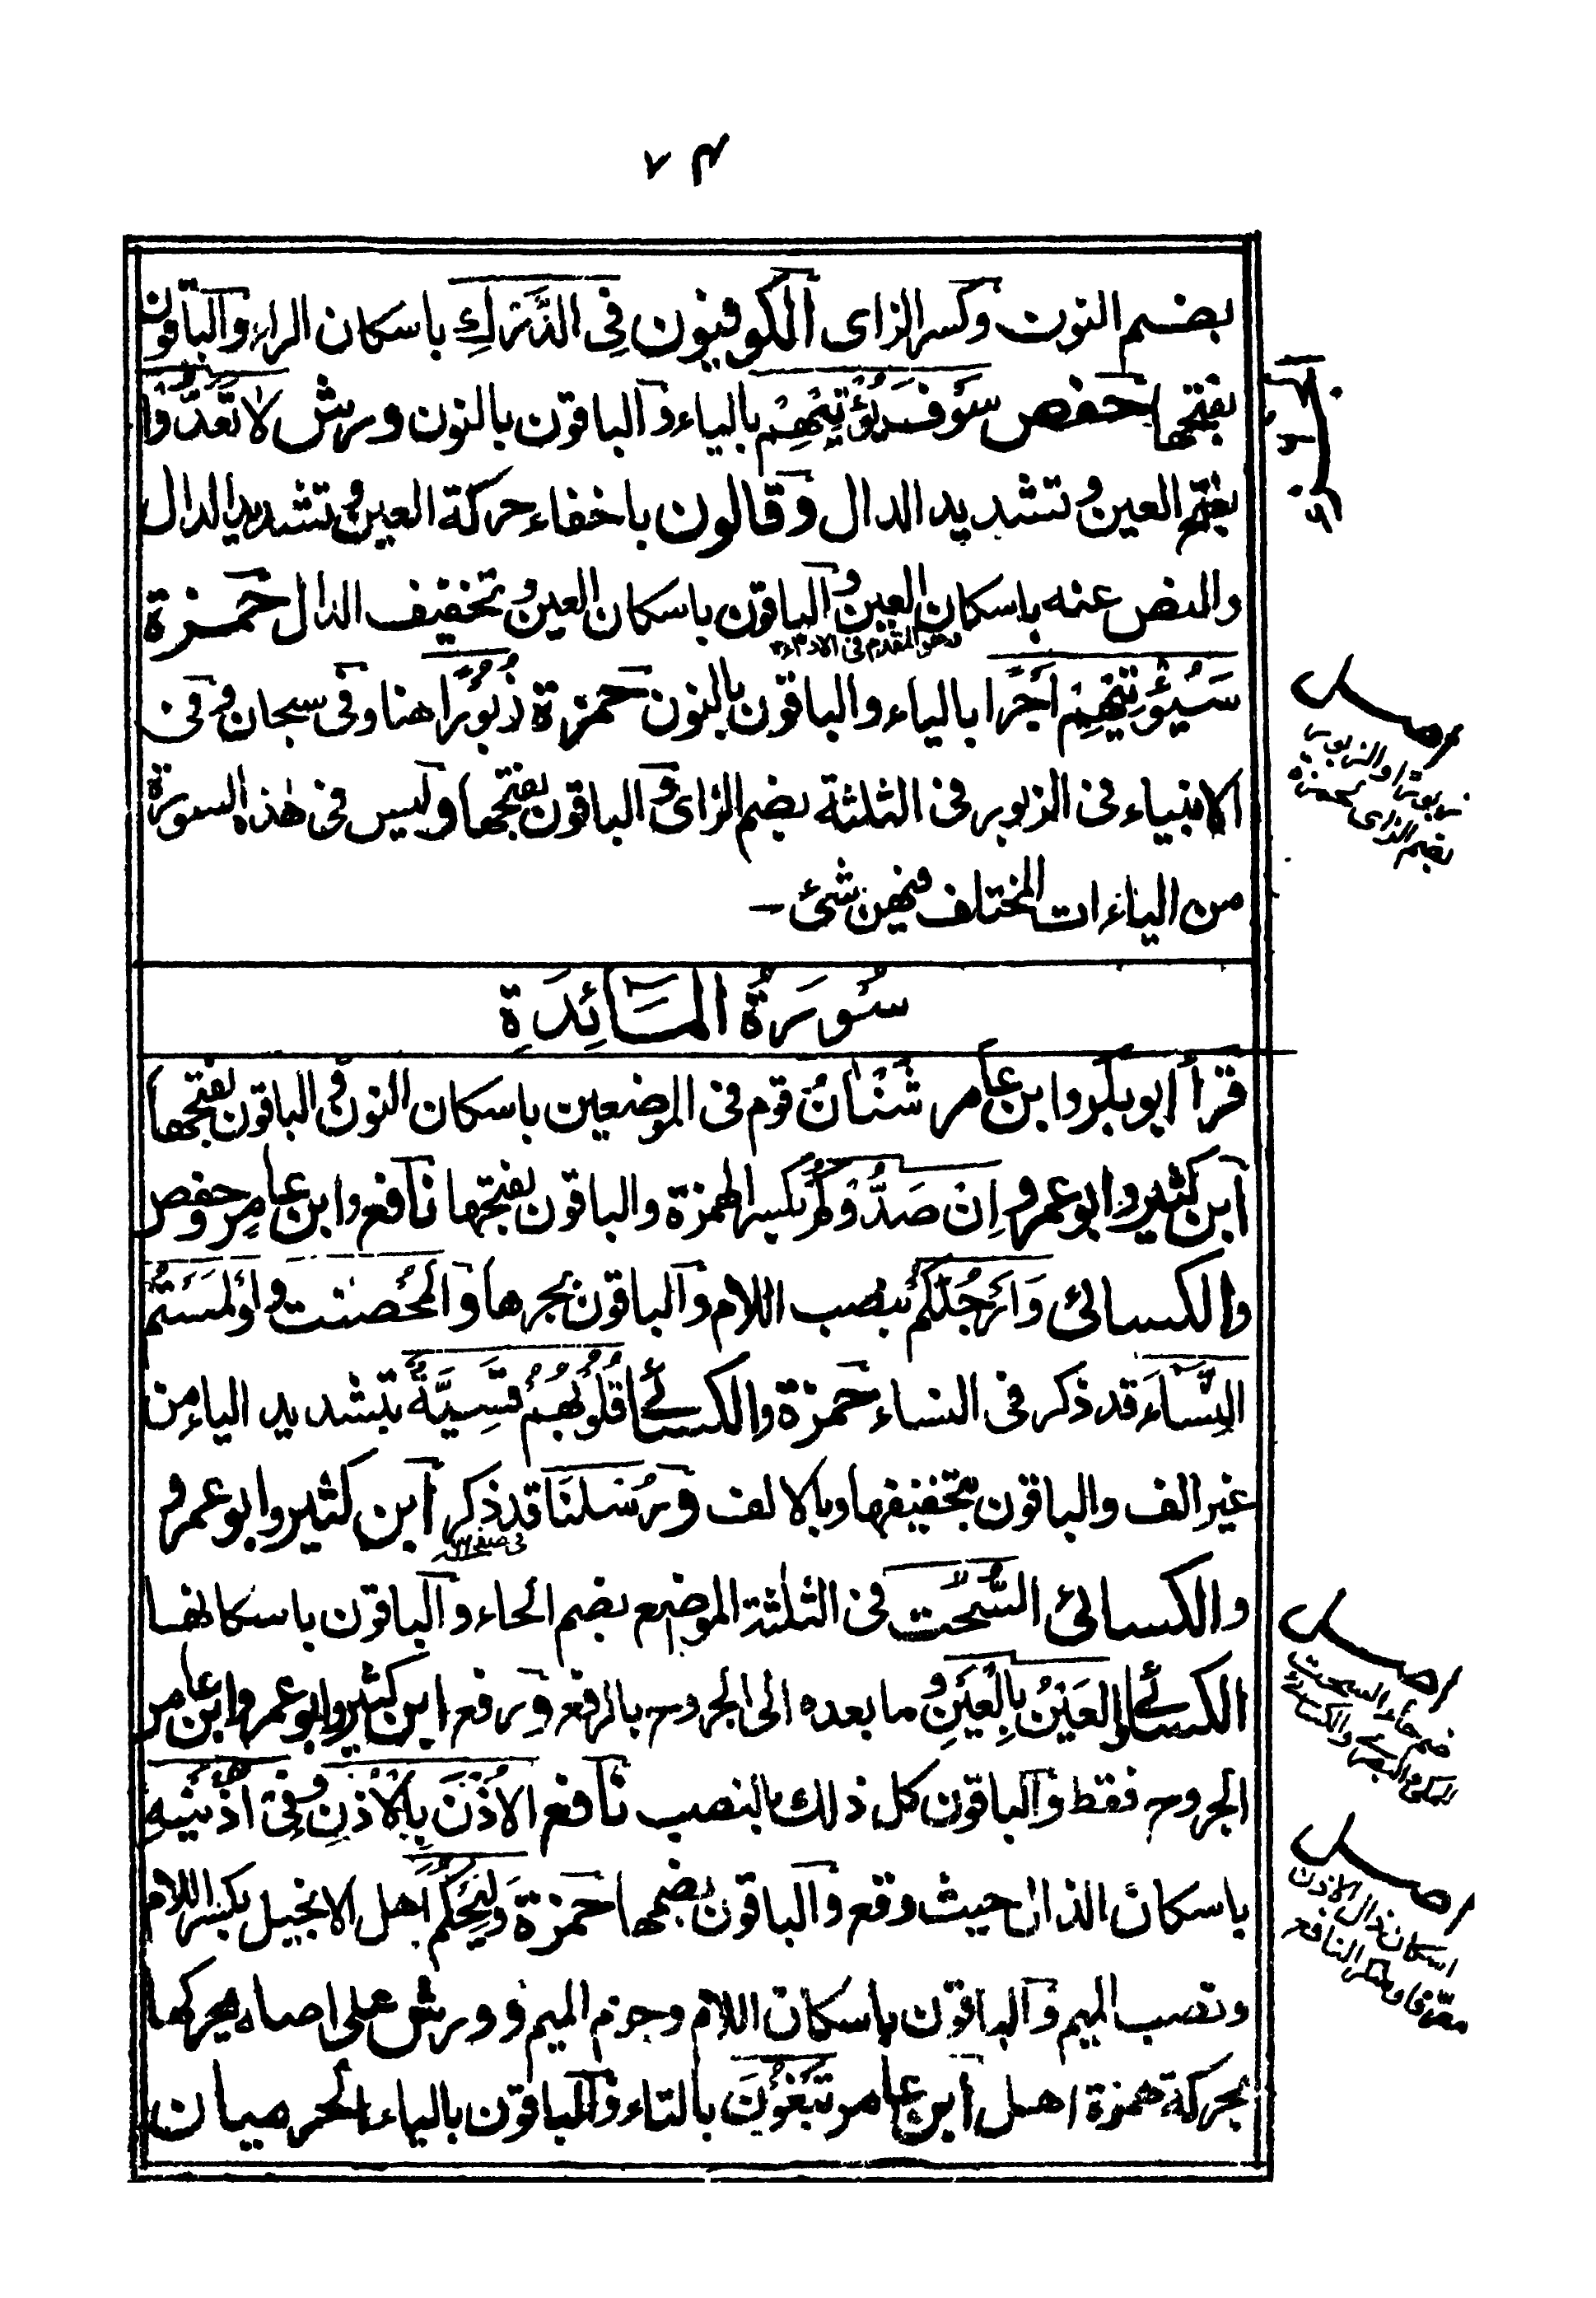 ٧٤
بضم النون وكسر الزاى الكوفيون فِى الدَّرْكِ باسكان الراء والباقون
بفتحها حفص سَوْفَ يُؤْتِيْهِمْ بالياء والباقون بالنون وورش لا تَعَدُّوْا
بفتح العين وتشديد الدال وقالون باخفاء حركة العين وتشديد الدال
والنص عنه باسكان العين والباقون باسكان العين وتخفيف الدال حمزة
وهو المقدم فى الاداء
سَيُؤْتِيْهِمْ اَجْرًا بالياء والباقون بالنون حمزة زُبُوْرًا هنا وفى سبحان وفى
الانبياء فى الزبور فى الثلثة بضم الزاى والباقون بفتحها وليس فى هذه السورة
من الياءات المختلف فيهن شئ -
اصل
زبورا والزبور
بضم الزاى لحمزة
سُوْرَةُ الْمَائِدَةِ
قرأ ابو بكر وابن عامر شَنْاٰنُ قوم فى الموضعين باسكان النون والباقون بفتحها
ابن كثير وابو عمرو اِنْ صَدُّوْكُمْ بكسر الهمزة والباقون بفتحها نافع وابن عامر وحفص
والكسائى وَاَرْجُلَكُمْ بنصب اللام والباقون بجرها والْمُحْصَنٰت واَوْ لٰمَسْتُمُ
النِّسَاءَ قد ذكر فى النساء حمزة والكسائى قُلُوْبَهُمْ قَسِيَّةً بتشديد الياء من
غير الف والباقون بتخفيفها وبالالف ورُسُلنَا قد ذكر ابن كثير وابو عمرو
والكسائى السُّحُت فى الثلثة المواضع بضم الحاء والباقون باسكانها
الكسائى والعَيْنُ بِالْعَيْنِ وما بعده الى الجروح بالرفع ورفع ابن كثير وابو عمرو وابن عامر
الجروح فقط والباقون كل ذلك بالنصب نافع الْاُذْنَ بِالْاُذْنِ وفِىْ اُذْنَيْهِ
باسكان الذال حيث وقع والباقون بضمها حمزة وَلِيَحْكُمَ اهل الانجيل بكسر اللام
ونصب الميم والباقون باسكان اللام وجزم الميم وورش على اصله يحركها
بحركة همزة اهل ابن عامر تَبْغُوْنَ بالتاء والباقون بالياء الحرميان
اصل
ضم حاء السحت
للمكى والبصرى والكسائى
اصل
اسكان ذال الاذن
معرفا ومنكرا لنافع